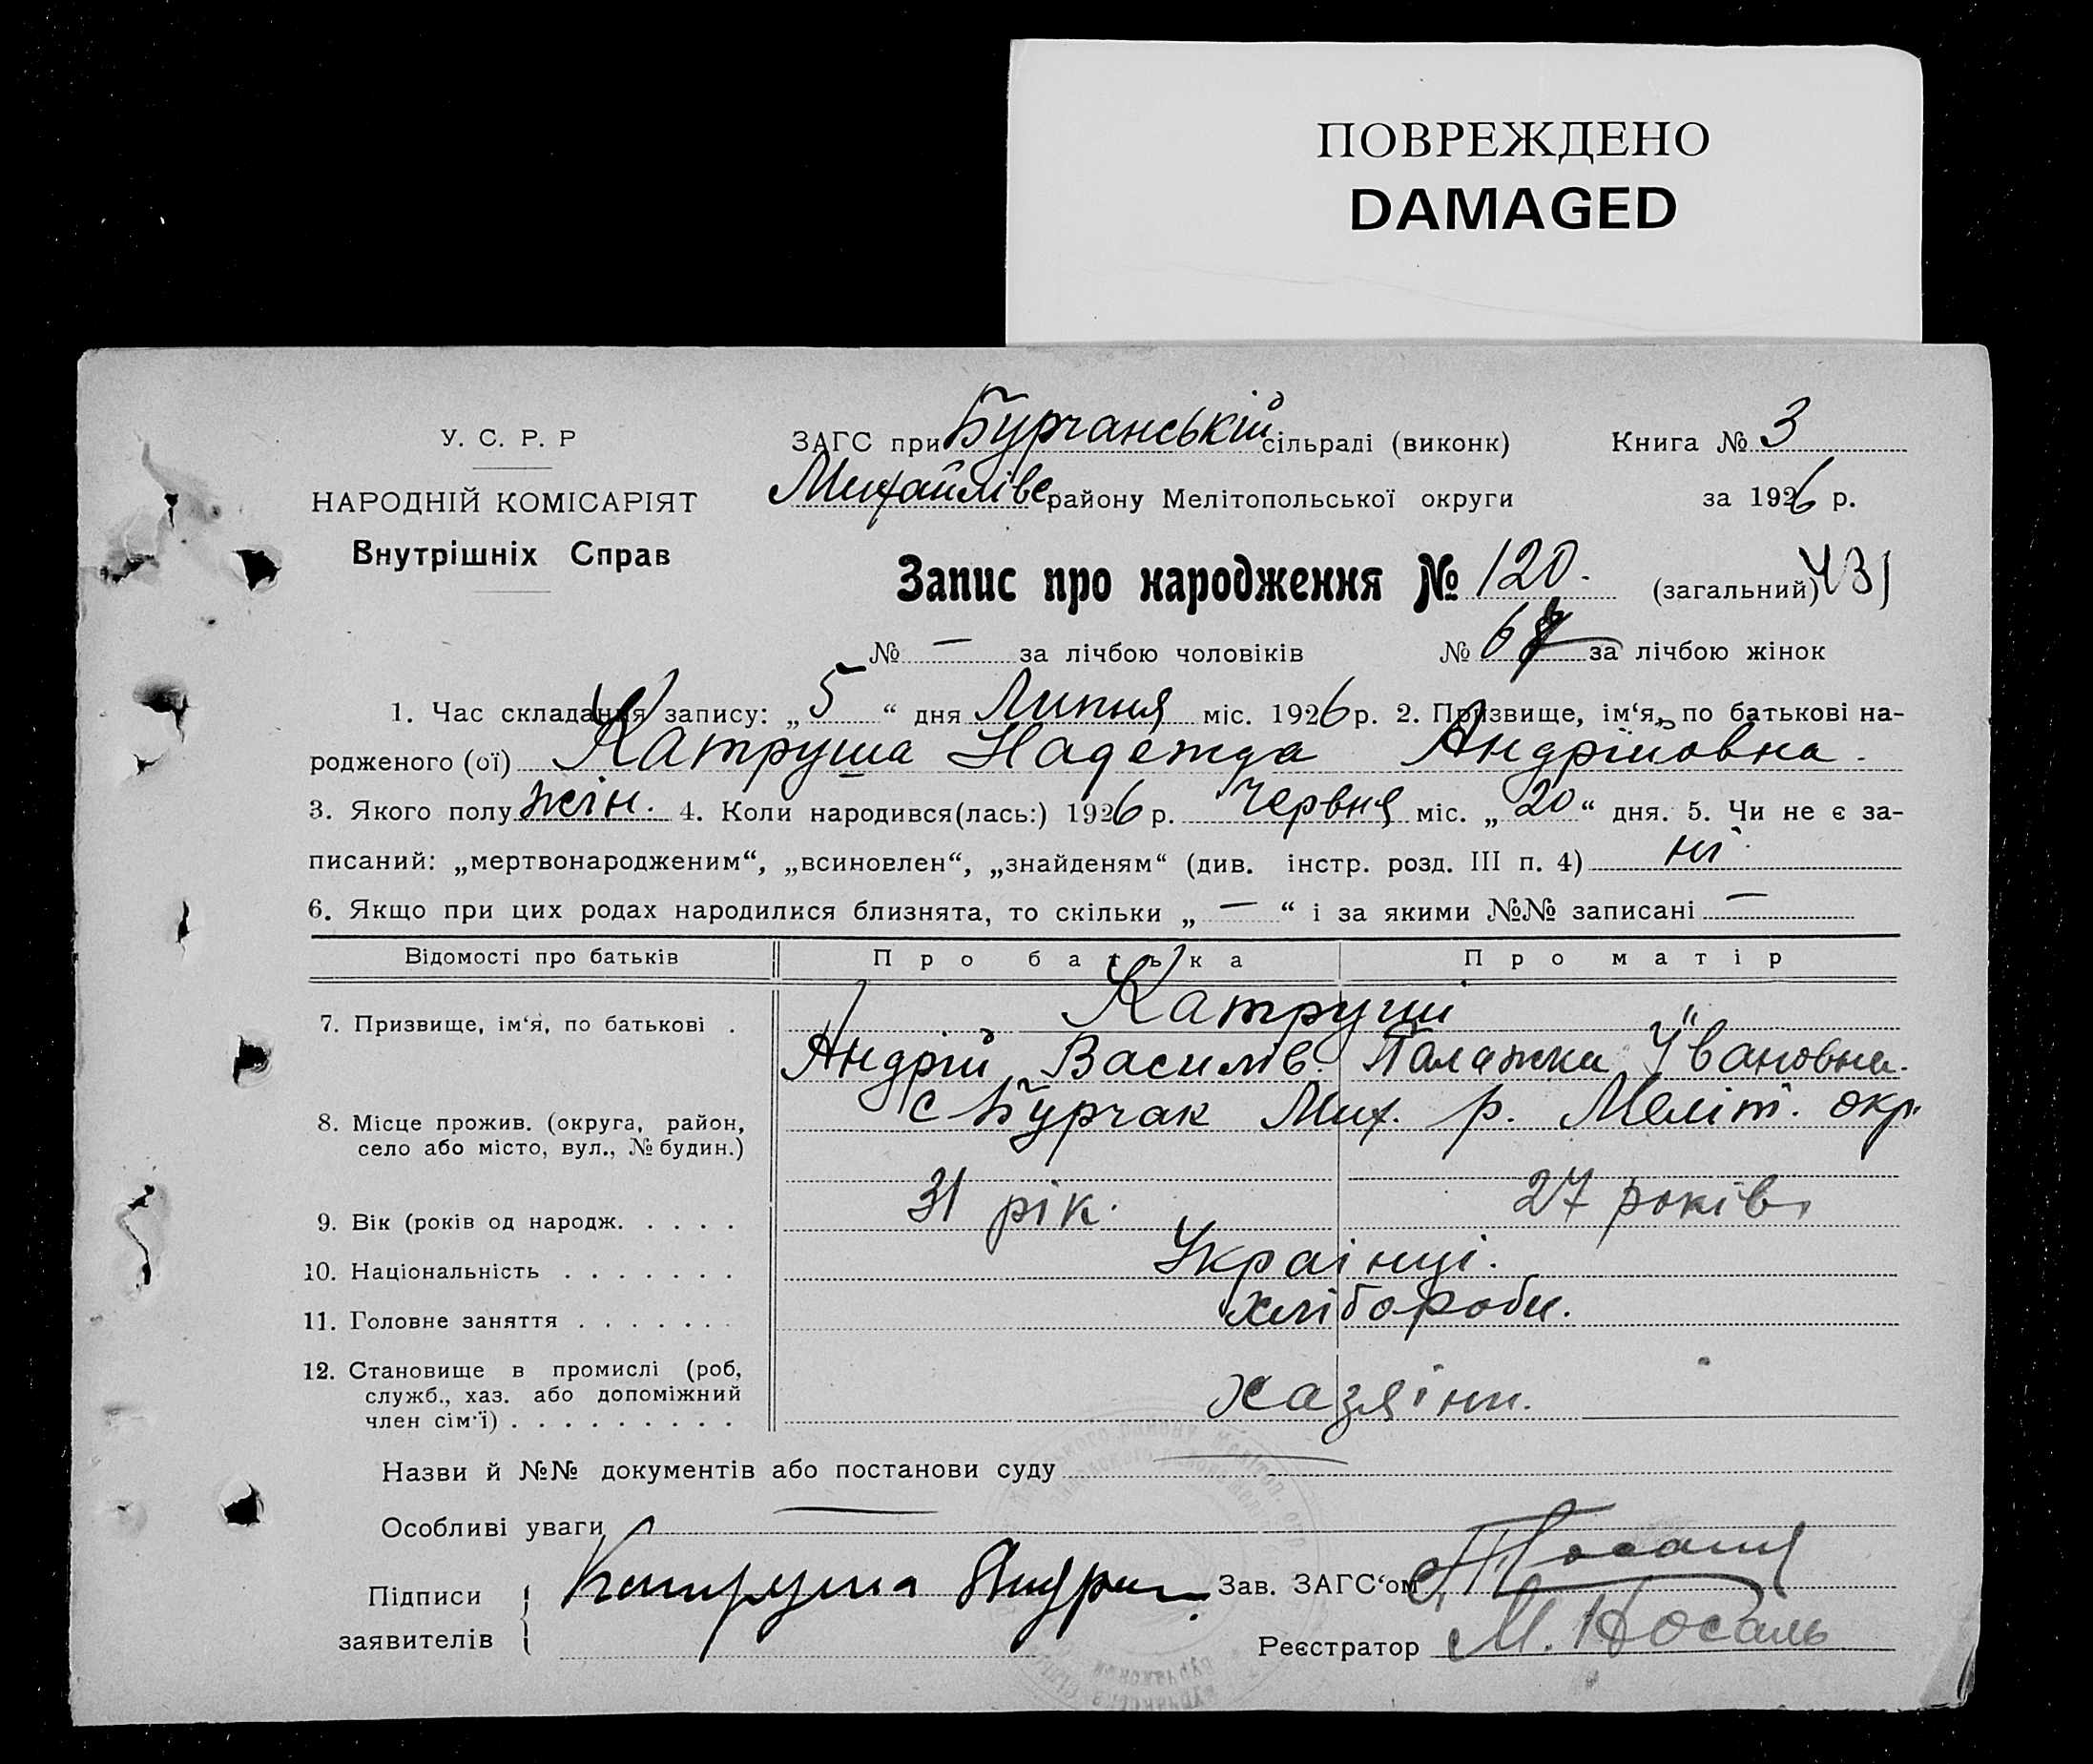 ПОВРЕЖДЕНО
DAMAGED
У. С. Р. Р
НАРОДНІЙ КОМІСАРІЯТ
Внутрішніх Справ
ЗАГС при Бурчанській сільраді (виконк) Книга № 3
Михайлівс району Мелітопольської округи за 1926 р.
Запис про народження № 120. (загальний) 431
№ — за лічбою чоловіків № за лічбою жінок
1. Час складання запису: „5“ дня Липня міс. 1926 р. 2. Призвище, ім‘я, по батькові на-
родженого (ої) Катруша Надежда Андріиовна.
3. Якого полу жін. 4. Коли народився(лась:) 1926 р. Червня міс. „20“ дня. 5. Чи не є за-
писаний: „мертвонародженим“, „всиновлен“, „знайденям“ (див. інстр. розд. III п. 4) ні
6. Якщо при цих родах народилися близнята, то скільки „—“ і за якими №№ записані —
Відомості про батьків Про батька Про матір
7. Призвище, ім‘я, по батькові . Катруші
Андрій Василів. Палажка Івановна.
8. Місце прожив. (округа, район, с Бурчак Мих. р. Меліт. окр.
село або місто, вул., № будин.)
9. Вік (років од народж. . . . . 31 рік. 27 років
10. Національність . . . . . . . Украінці.
11. Головне заняття . . . . . . . хлібороби.
12. Становище в промислі (роб,
служб., хаз. або допоміжний
член сім‘ї) . . . . . . . . . хазяіни.
Назви й №№ документів або постанови суду
Особливі уваги
Підписи Катруша Андрий Зав. ЗАГС‘ом
заявителів Реєстратор М. Носаль